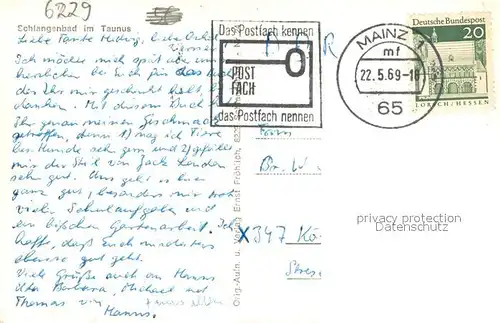 6229
56
Schlangenbad im Taunus
Liebe Tante Hedwig, liebe Onkel
Ich möchte mich spät aber um
herzlicher bei Euch für das Buch
das Ihr mir geschenkt habt, be
danken. Mit diesem Buch habt
Ihr genau meinen Geschmack
getroffen, denn 1) mag ich Tiere
bes Hunde sehr gern und 2) gefällt
mir der Stil von Jack London
sehr gut. Uns geht es hier
ganz gut, besonders mir trotz
vieler Schulaufgaben und
ein bißchen Gartenarbeit. Ich
hoffe, daß Euch mindestens
ebenso gut geht.
Viele Grüße auch an Hanns
Uta Barbara, Michael und
Thomas von
Hanns.
Orig.-Aufn. u. Verlag Ernst Fröhlich,
Das Postfach kennen
POST
FACH
das Postfach nennen
MAINZ 1
mf
22.5.69-18
65
Deutsche Bundespost
20
LORSCH/HESSEN
Br. W
X 347 Kö
Stres
privacy protection
Datenschutz